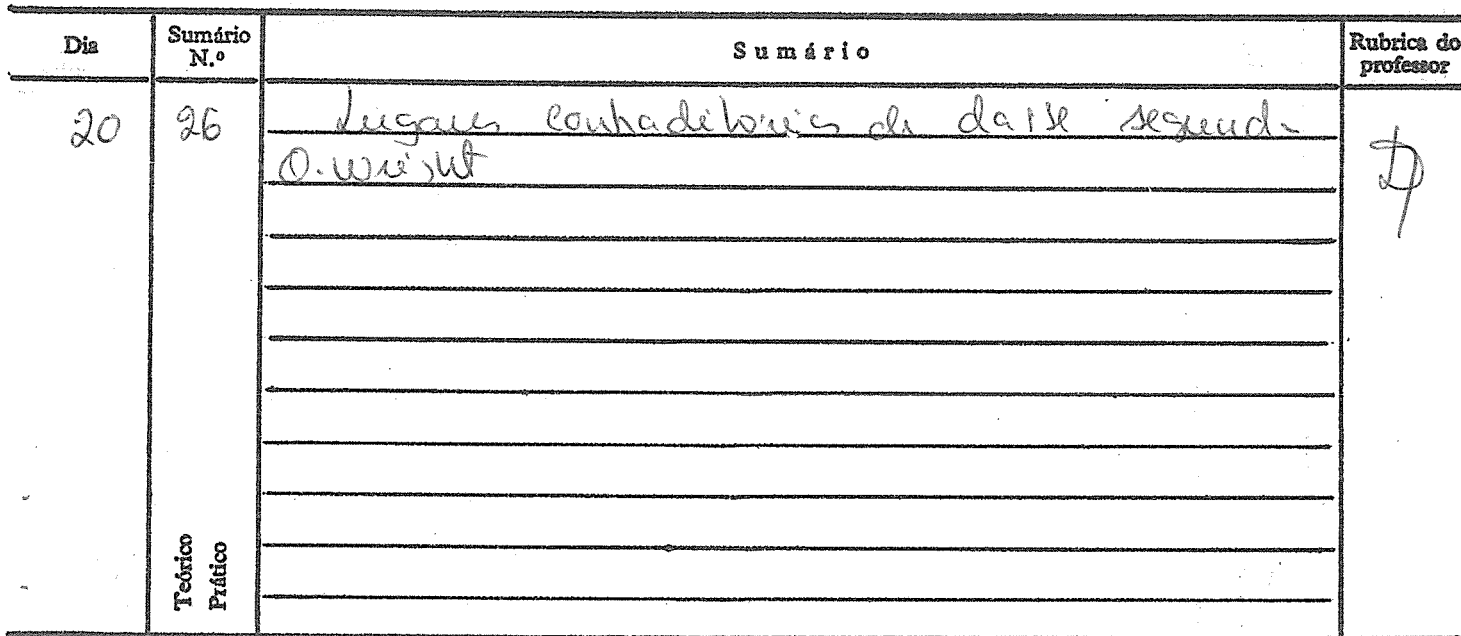 Dia
Sumário N.º
Sumário
Rubrica do professor
20
26
Lugares contraditórios de classe segundo
O. Wright
Teórico
Prático